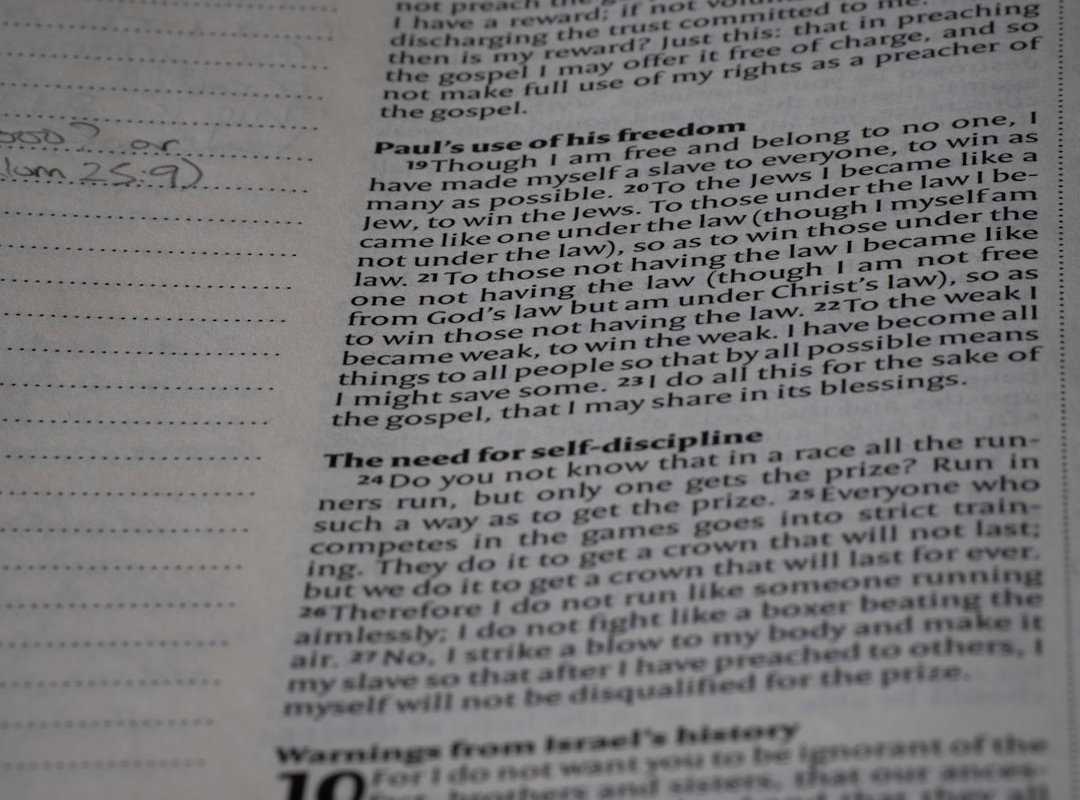 not preach the
I have a reward; if not
discharging the trust committed to me.
then is my reward? Just this: that in preaching
the gospel I may offer it free of charge, and so
not make full use of my rights as a preacher of
the gospel.
Paul's use of his freedom
19 Though I am free and belong to no one, I
have made myself a slave to everyone, to win as
many as possible. 20 To the Jews I became like a
Jew, to win the Jews. To those under the law I be-
came like one under the law (though I myself am
not under the law), so as to win those under the
law. 21 To those not having the law I became like
one not having the law (though I am not free
from God's law but am under Christ's law), so as
to win those not having the law. 22 To the weak I
became weak, to win the weak. I have become all
things to all people so that by all possible means
I might save some. 23 I do all this for the sake of
the gospel, that I may share in its blessings.
The need for self-discipline
24 Do you not know that in a race all the run-
ners run, but only one gets the prize? Run in
such a way as to get the prize. 25 Everyone who
competes in the games goes into strict train-
ing. They do it to get a crown that will not last;
but we do it to get a crown that will last for ever.
26 Therefore I do not run like someone running
aimlessly; I do not fight like a boxer beating the
air. 27 No, I strike a blow to my body and make it
my slave so that after I have preached to others, I
myself will not be disqualified for the prize.
Warnings from Israel's history
10 For I do not want you to be ignorant of the
fact, brothers and sisters, that our ances-
that they all
000? or
25:9)